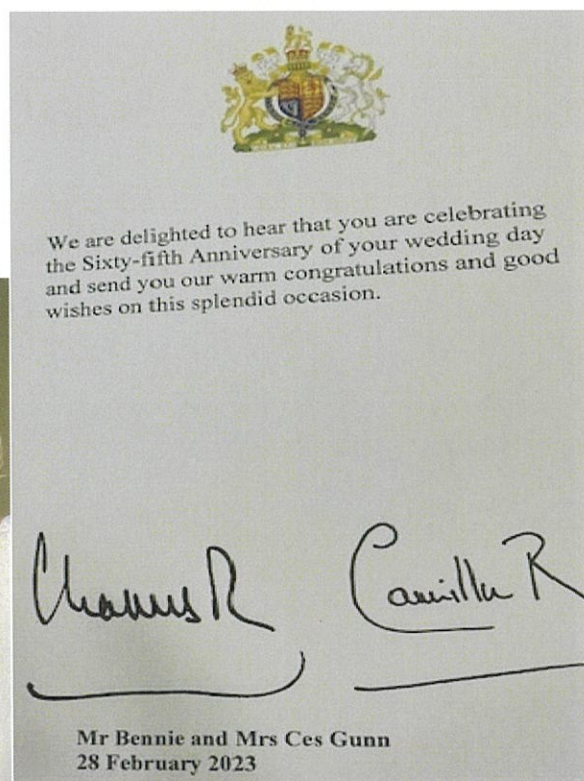 We are delighted to hear that you are celebrating
the Sixty-fifth Anniversary of your wedding day
and send you our warm congratulations and good
wishes on this splendid occasion.
Charles R
Camilla R
Mr Bennie and Mrs Ces Gunn
28 February 2023